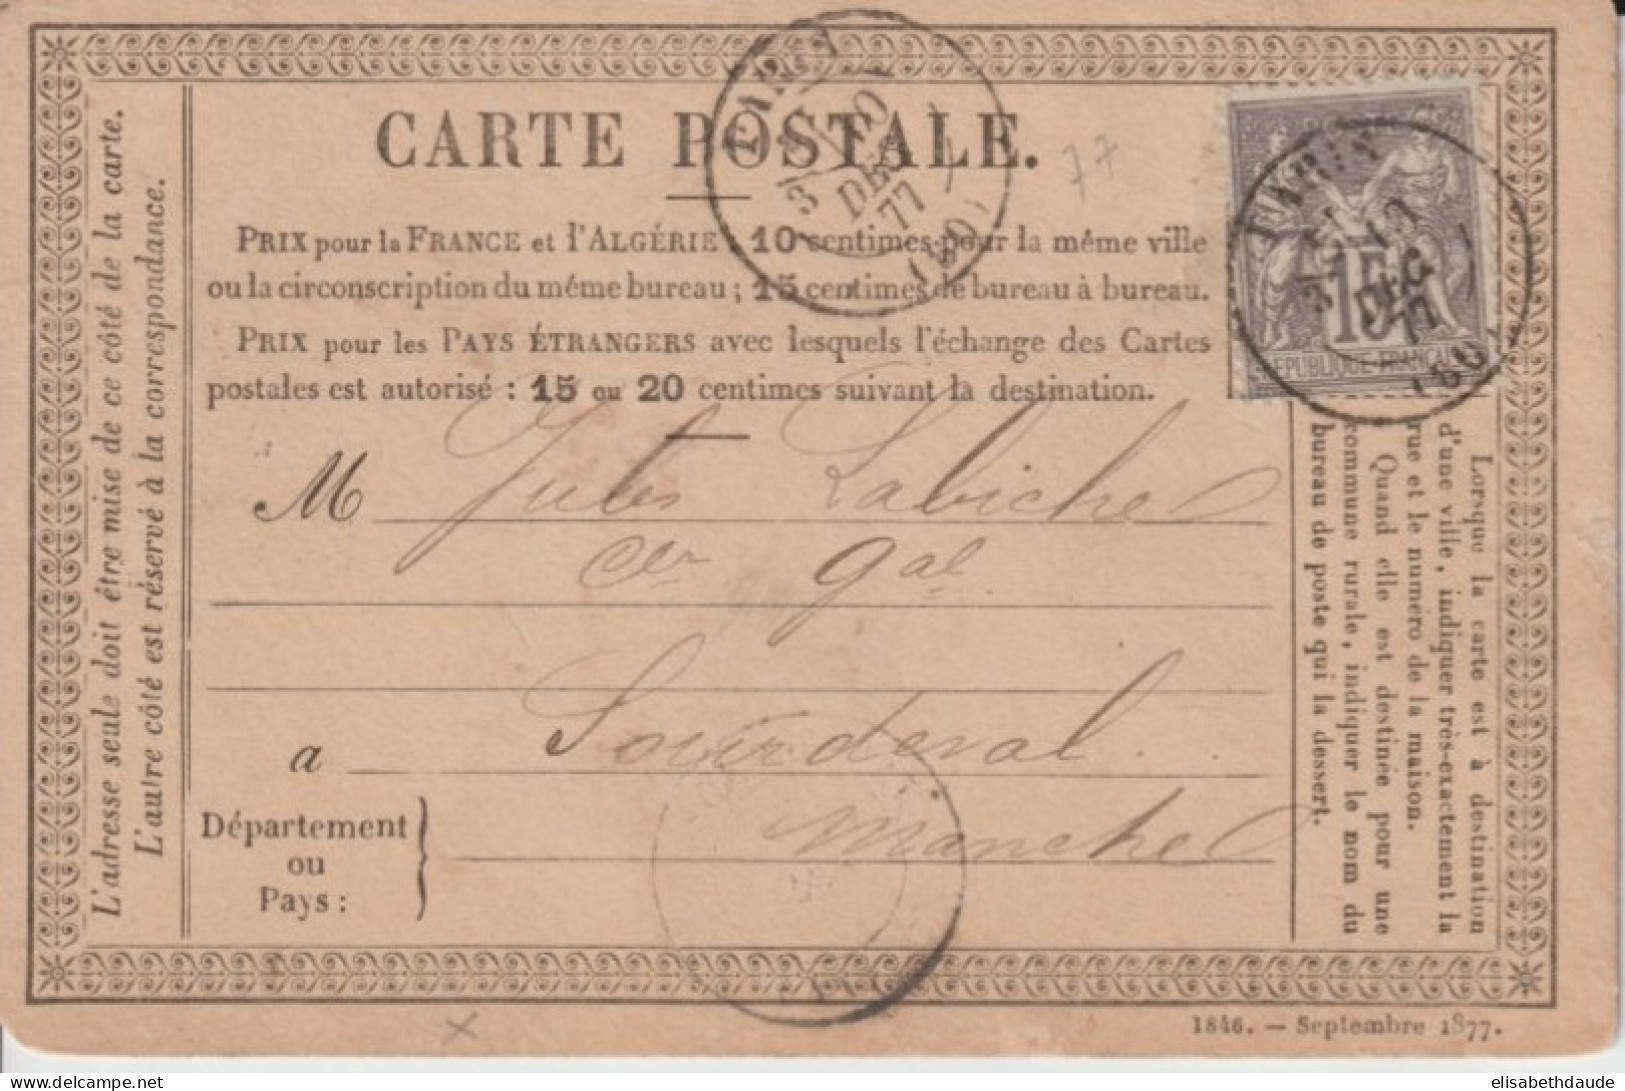 CARTE POSTALE.
PRIX pour la FRANCE et l'ALGÉRIE : 10 centimes pour la même ville
ou la circonscription du même bureau ; 15 centimes de bureau à bureau.
PRIX pour les PAYS ÉTRANGERS avec lesquels l'échange des Cartes
postales est autorisé : 15 ou 20 centimes suivant la destination.
M Jules Labiche
gal
a Sourdeval
Département
ou
Pays :
Manche
L'adresse seule doit être mise de ce côté de la carte.
L'autre côté est réservé à la correspondance.
Lorsque la carte est à destination
d'une ville, indiquer très-exactement la
rue et le numéro de la maison.
Quand elle est destinée pour une
commune rurale, indiquer le nom du
bureau de poste qui la dessert.
3
DEC
77
(60)
77
15
REPUBLIQUE FRANCAISE
DEC
77
1846. — Septembre 1877.
elisabethdaude